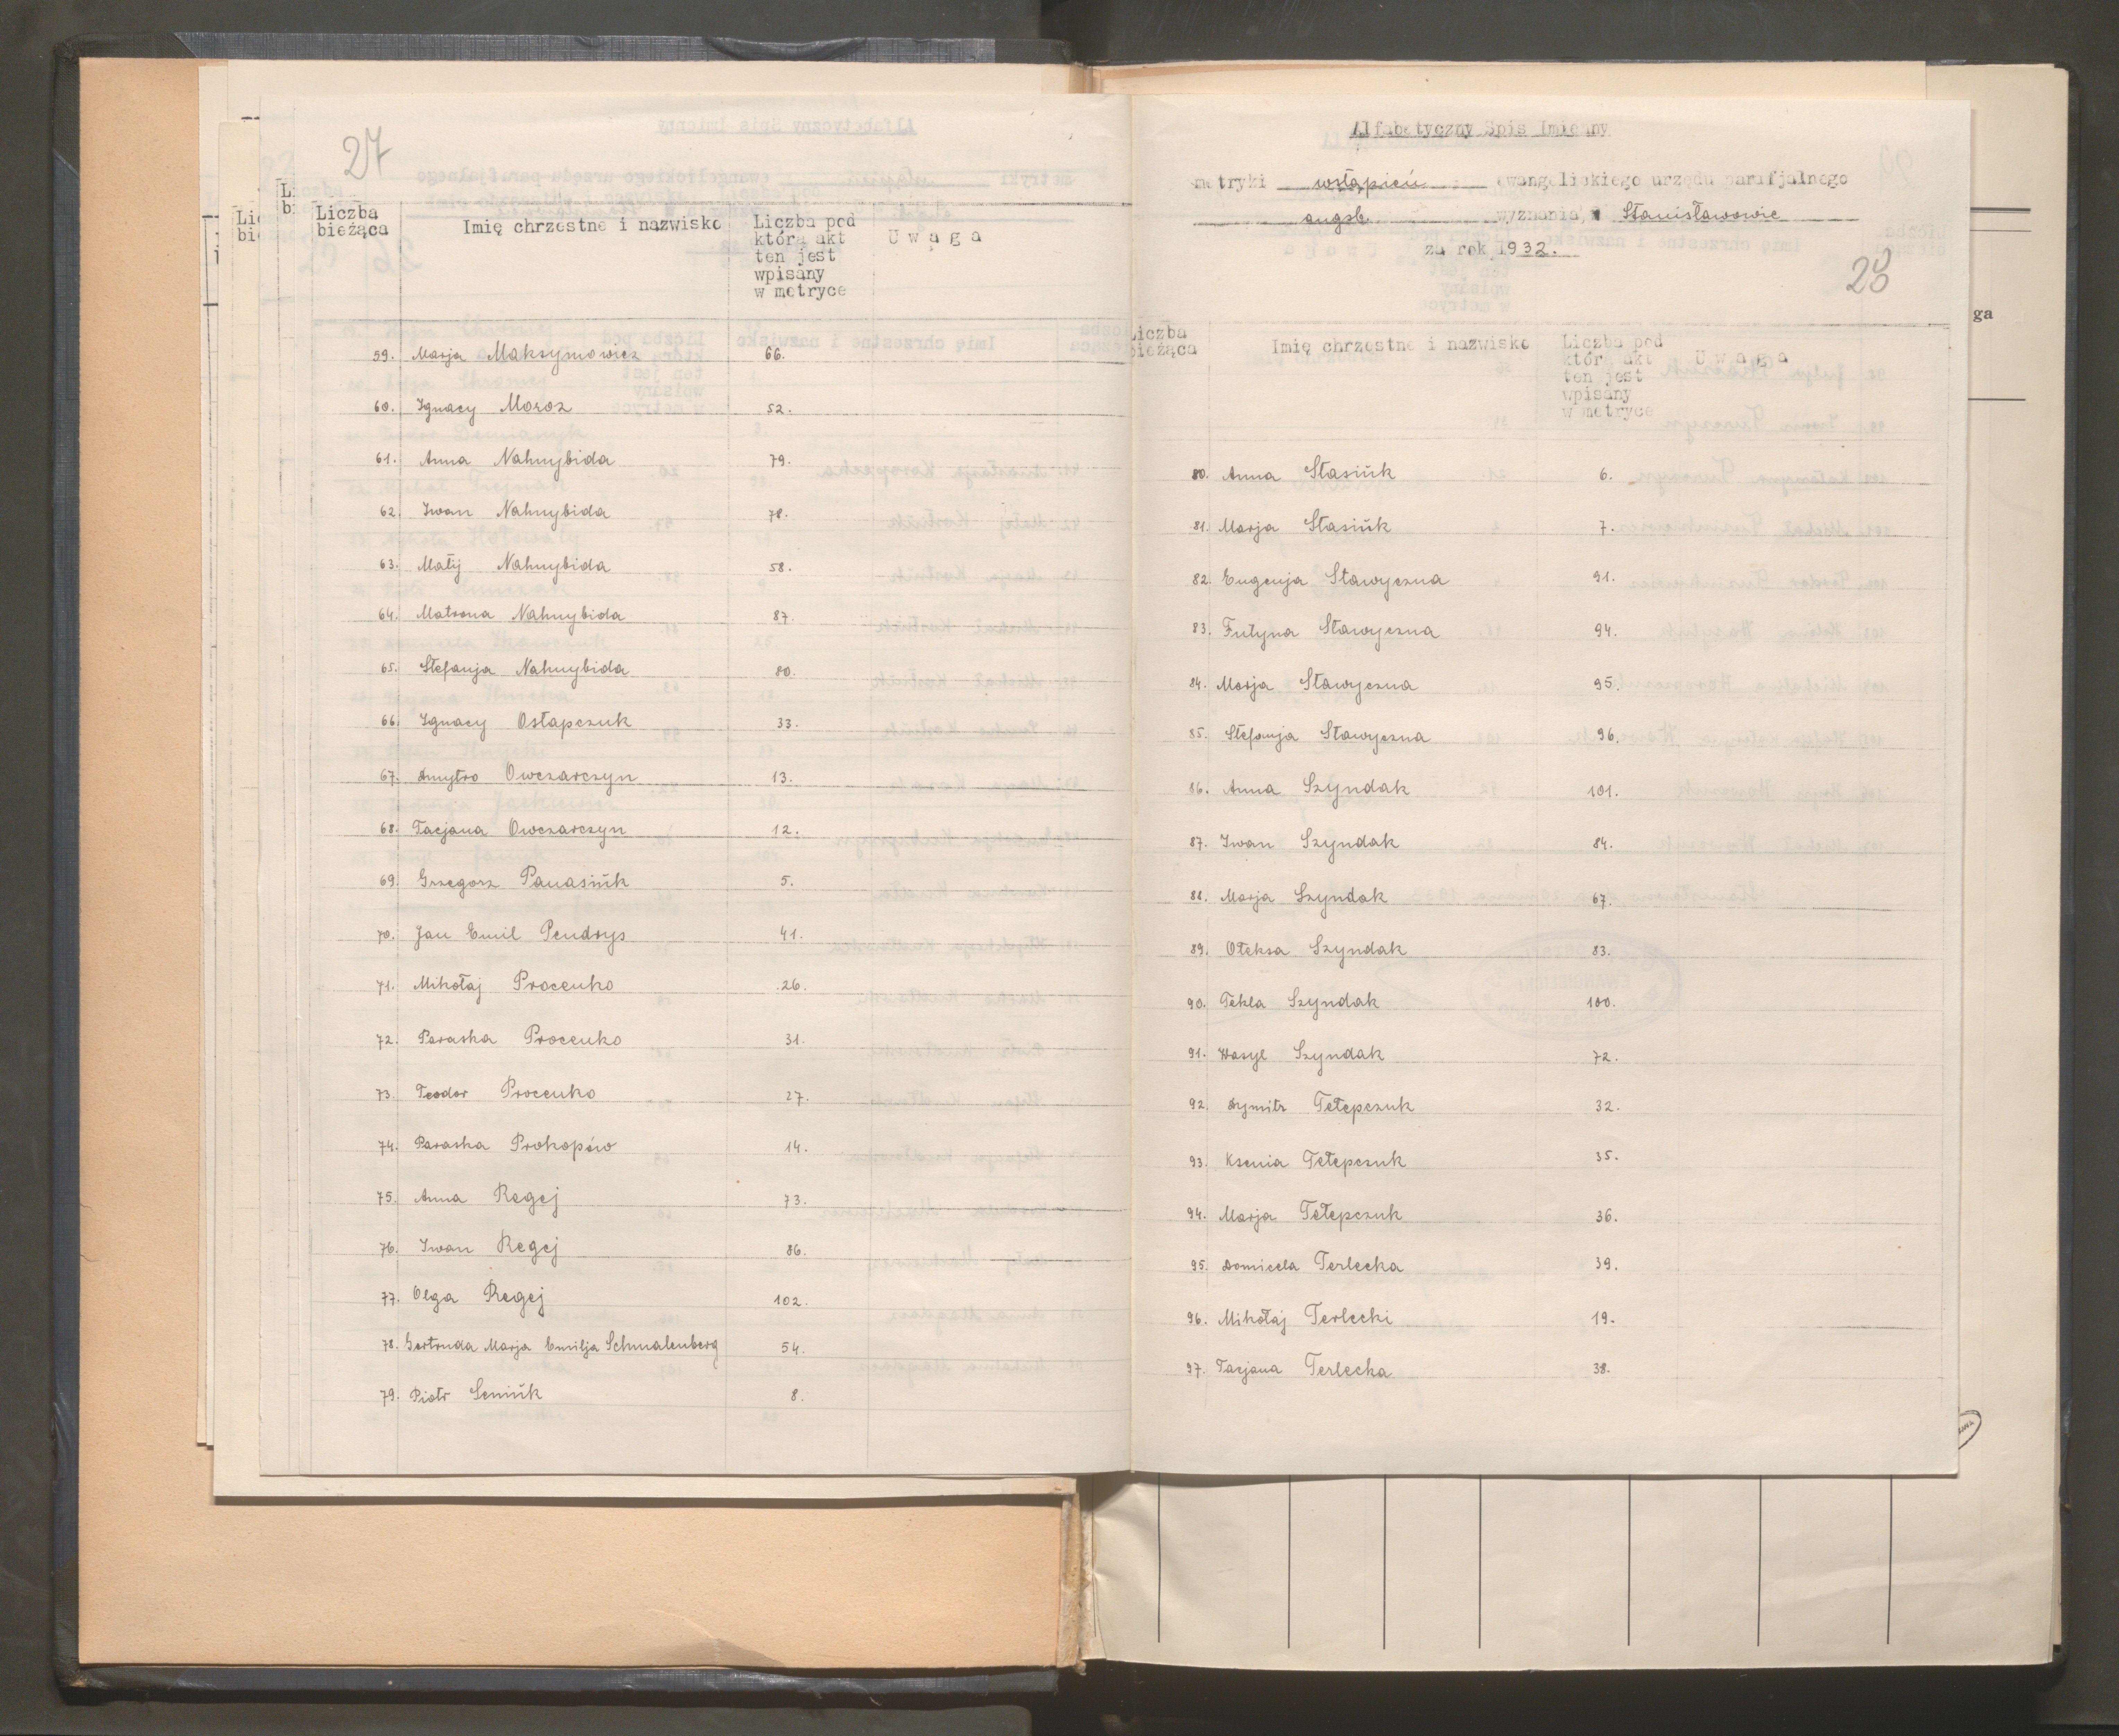 27
Liczba bieżąca Imię chrzestne i nazwisko Liczba pod którą akt ten jest wpisany w metryce Uwaga
59. Marja Maksymowicz 66.
60. Ignacy Moroz 52.
61. Anna Nahnybida 79.
62. Iwan Nahnybida 78.
63. Matij Nahnybida 58.
64. Matrona Nahnybida 87.
65. Stefanja Nahnybida 80.
66. Ignacy Ostapczuk 33.
67. Dmytro Owczarczyn 13.
68. Tacjana Owczarczyn 12.
69. Grzegorz Panasiuk 5.
70. Jan Emil Pendrys 41.
71. Mikołaj Procenko 26.
72. Paraska Procenko 31.
73. Teodor Procenko 27.
74. Paraska Prokopów 14.
75. Anna Regej 73.
76. Iwan Regej 86.
77. Olga Regej 102.
78. Gertruda Marja Emilja Schmalenberg 54.
79. Piotr Semiuk 8.
Alfabetyczny Spis Imienny
metryki wstąpień ewangelickiego urzędu parafjalnego
augsb. wyznania w Stanisławowie
za rok 1932.
28
Liczba bieżąca Imię chrzestne i nazwisko Liczba pod którą akt ten jest wpisany w metryce Uwaga
80. Anna Stasiuk 6.
81. Marja Stasiuk 7.
82. Eugenja Stawyczna 91.
83. Futyna Stawyczna 94.
84. Marja Stawyczna 95.
85. Stefanja Stawyczna 96.
86. Anna Szyndak 101.
87. Iwan Szyndak 84.
88. Marja Szyndak 67.
89. Ołeksa Szyndak 83.
90. Tekla Szyndak 100.
91. Wasyl Szyndak 72.
92. Dymitr Tełepczuk 32.
93. Ksenia Tełepczuk 35.
94. Marja Tełepczuk 36.
95. Domicela Terlecka 39.
96. Mikołaj Terlecki 19.
97. Tacjana Terlecka 38.
ga